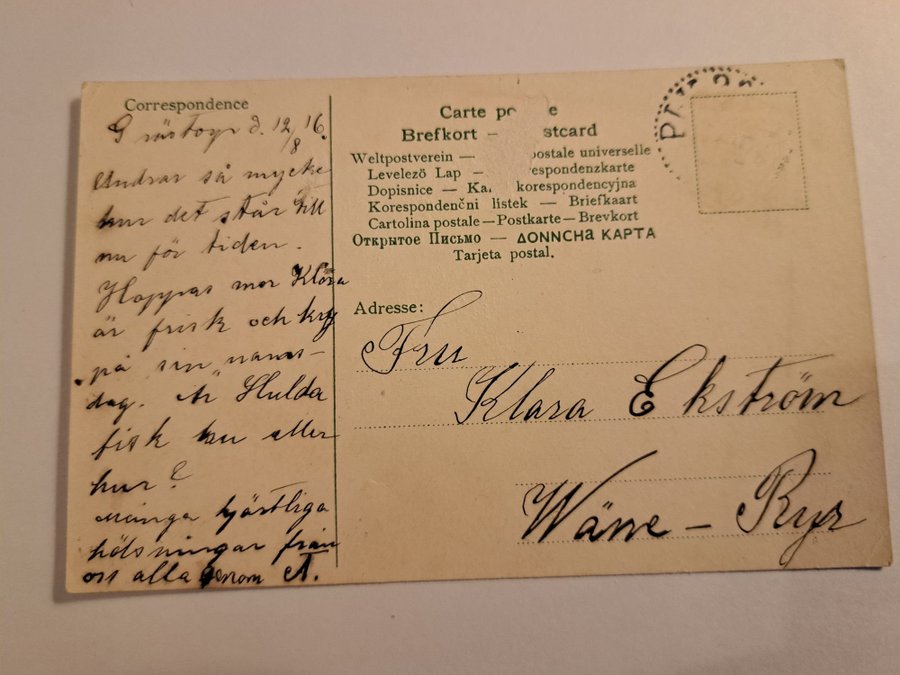 Correspondence
Grästorp d. 12/8 16.
Undrar så mycke
hur det står till
nu för tiden.
Hoppas mor Klara
är frisk och kry
på sin namns-
dag. Är Hulda
fisk nu eller
hur?
Många hjärtliga
hälsningar från
oss alla genom A.
Carte po e
Brefkort – stcard
Weltpostverein — postale universelle
Levelező Lap — respondenzkarte
Dopisnice — Ka korespondencyjna
Korespondenčni listek — Briefkaart
Cartolina postale — Postkarte — Brevkort
Открытое Письмо — ΔΟΝΝCHа КАРТА
Tarjeta postal.
Adresse:
Fru
Klara Ekström
Wäne - Ryr